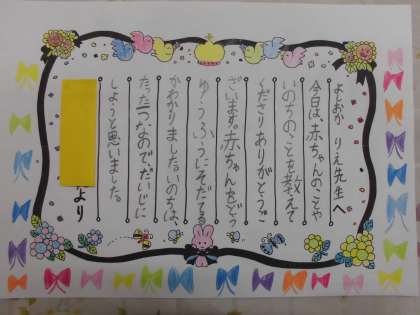 よしおか りえ先生へ
今日は、赤ちゃんのことや
いのちのことを教えて
くださりありがとうご
ざいます。赤ちゃんをどう
ゆうふうにそだてる
かわかりました。いのちは、
たった一つなので、だいじに
しようと思いました。
より